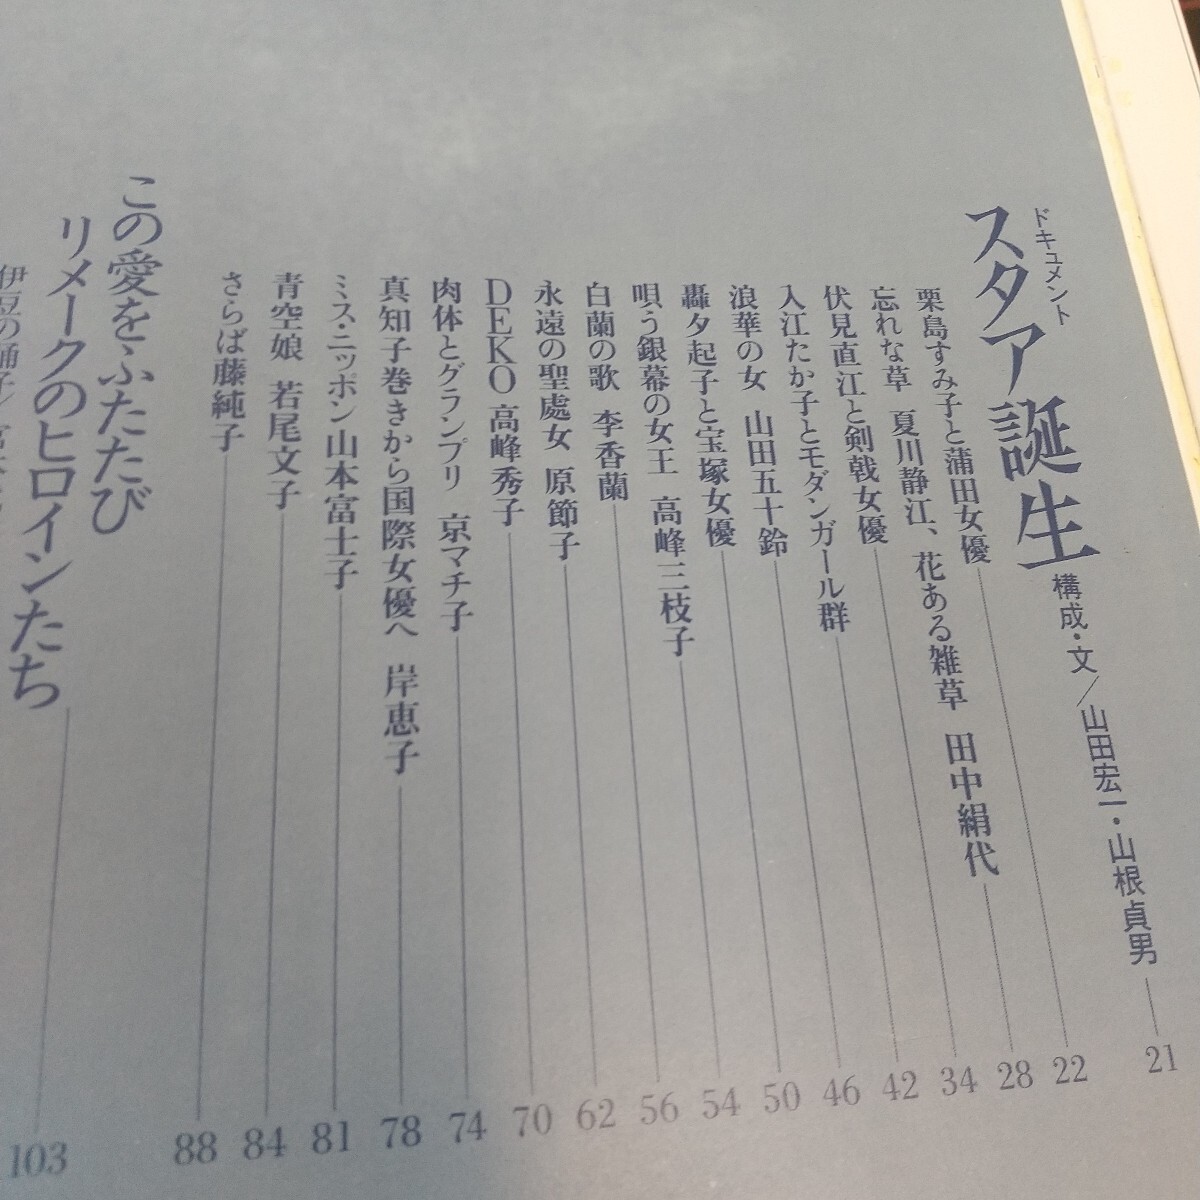 ドキュメント
スタア誕生 構成・文／山田宏一・山根貞男 21
栗島すみ子と蒲田女優 22
忘れな草 夏川静江、花ある雑草 田中絹代 28
伏見直江と剣戟女優 34
入江たか子とモダンガール群 42
浪華の女 山田五十鈴 46
轟夕起子と宝塚女優 50
唄う銀幕の女王 高峰三枝子 54
白蘭の歌 李香蘭 56
永遠の聖處女 原節子 62
DEKO 高峰秀子 70
肉体とグランプリ 京マチ子 74
真知子巻きから国際女優へ 岸恵子 78
ミス・ニッポン 山本富士子 81
青空娘 若尾文子 84
さらば藤純子 88
この愛をふたたび
リメークのヒロインたち 103
伊豆の踊子